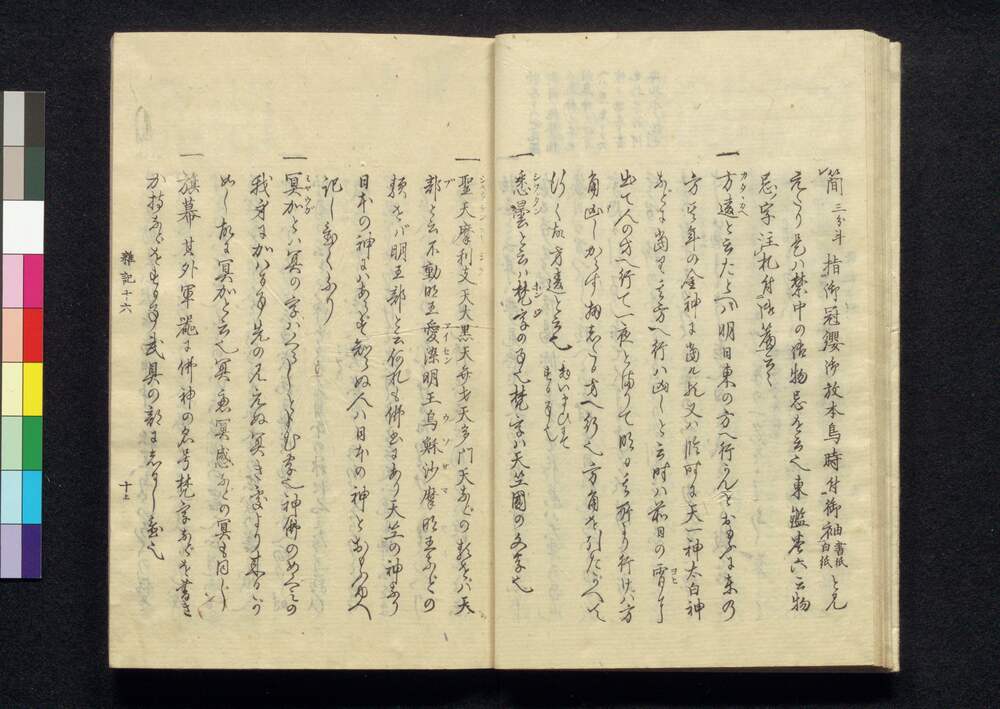 簡三分斗指御冠纓御放本鳥時付御袖書紙白紙と見
えたり是ハ禁中の御物忌を云也東鑑巻六云物
忌字注札付御簾云々
一方違と云ハたとへハ明日東の方へ行んとおもふに東の
方其年の金神に当ル歟又ハ臨時に天一神太白神
などに当り其方へ行ハ凶しと云時ハ前日の宵より
出て人の方へ行て一夜とまりて明日其所より行けハ方
角凶しからす扨志たる方へ行也方角を引たがへて
行く故方違と云也
一悉曇と云ハ梵字の事也梵字ハ天竺國の文字也
一聖天摩利支天大黒天弁才天多門天などの類をハ天
部と云不動明王愛染明王烏蒭沙摩明王などの
類をハ明王部と云何れも佛書にあり天竺の神なり
日本の神にハあらず知らぬ人ハ日本の神とおもふゆへ
記し置くなり
一冥加とハ冥の字ハくらしとよむ字也神佛のめぐみの
我身にかゝる事先の見えぬ冥き處より来るが
如し故に冥加と云也冥慮冥感などの冥も同じ
一旗幕其外軍器に佛神の名号梵字などを書き
か持などをする事武具の部にしるし置也
雑記十六
十二